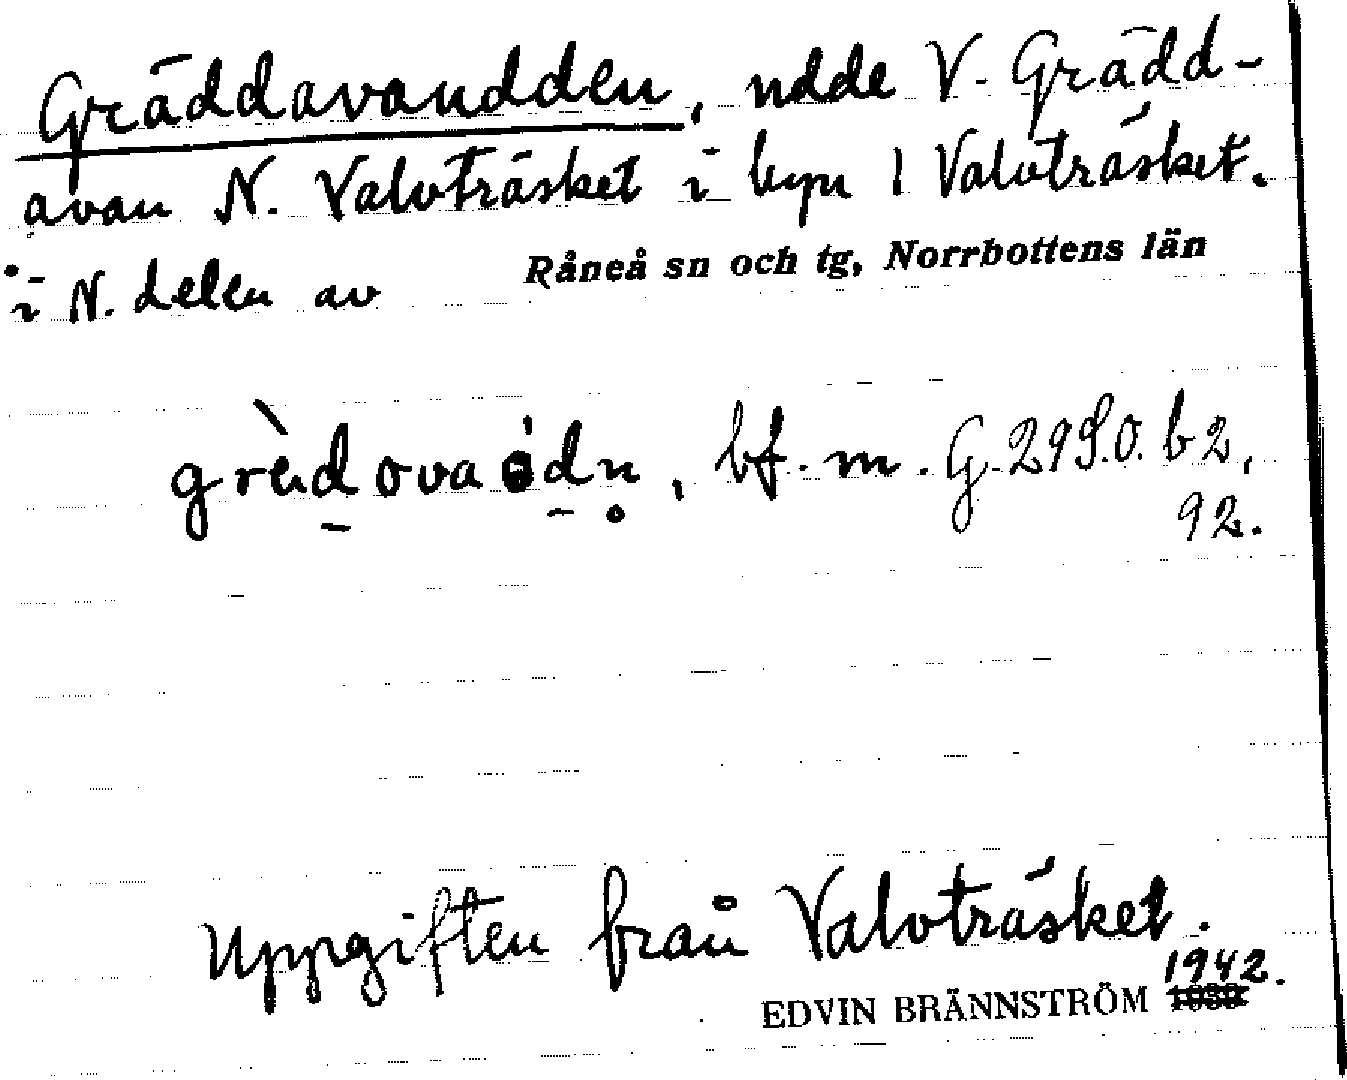 Gräddavaudden, udde V. Grädd-
avan N. Valvträsket i byn 1 Valvträsket.
i N. delen av Råneå sn och tg, Norrbottens län
bf. m. G. 2950. b2,
92.
Uppgiften från Valvträsket.
1942.
EDVIN BRÄNNSTRÖM 1939